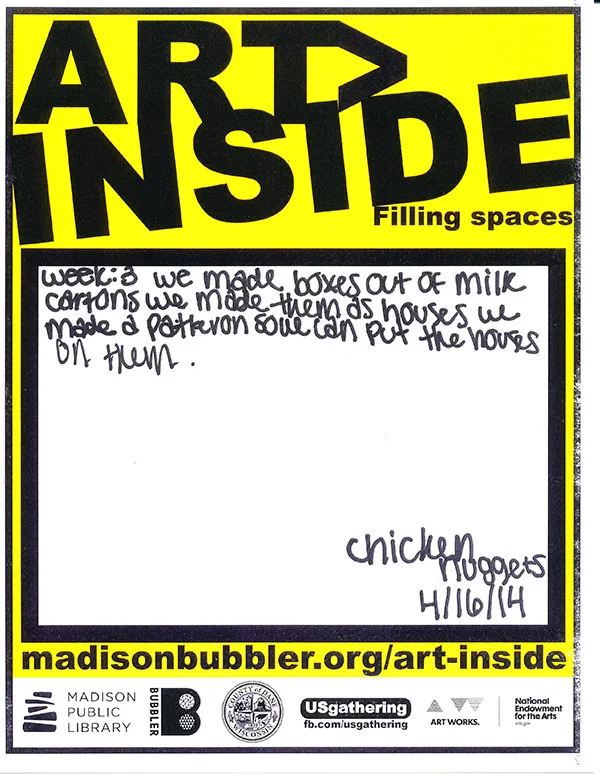 ART>
INSIDE
Filling spaces
week: 3 we made boxes out of milk
cartons we made them as houses we
made a patteron so we can put the houses
on them.
chicken
nuggets
4/16/14
madisonbubbler.org/art-inside
MADISON
PUBLIC
LIBRARY
BUBBLER
B
COUNTY of DANE
WISCONSIN
USgathering
fb.com/usgathering
ART WORKS.
National
Endowment
for the Arts
arts.gov